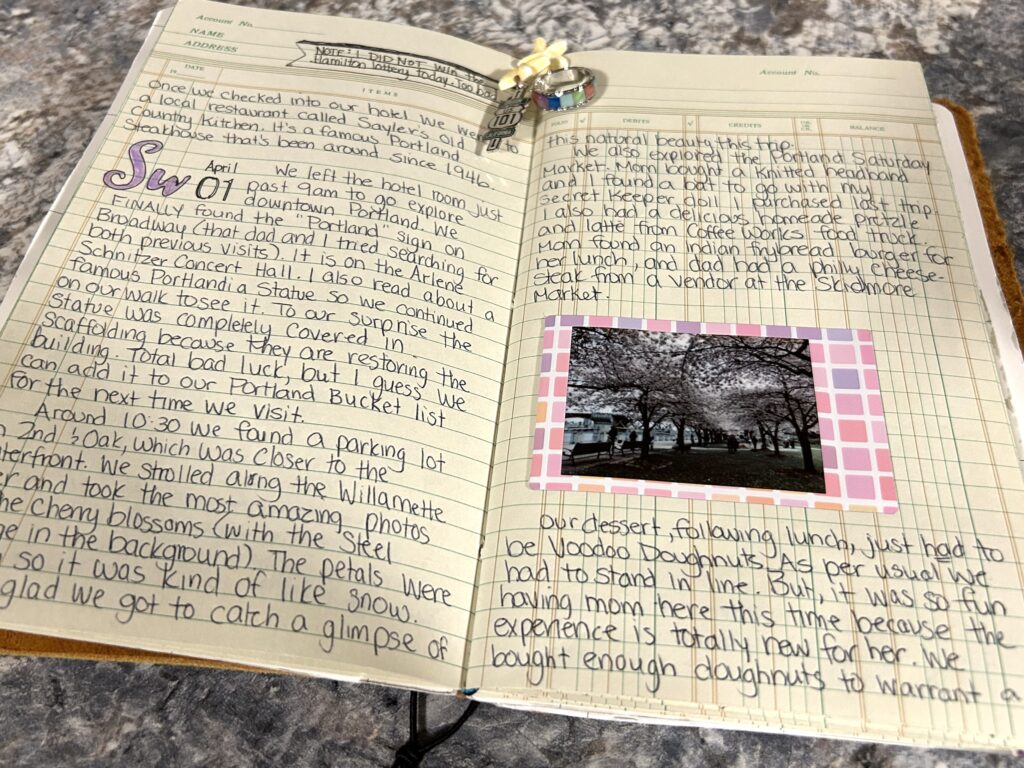 Account No.
NAME
ADDRESS
NOTE: I DID NOT win the
Hamilton lottery today. Too bad
DATE
ITEMS
Once we checked into our hotel we went to
a local restaurant called Sayler's Old
Country Kitchen. It's a famous Portland
Steakhouse that's been around since 1946.
Su
April
01
We left the hotel room just
past 9am to go explore
downtown Portland. We
FINALLY found the "Portland" sign on
Broadway (that dad and I tried searching for
both previous visits). It is on the Arlene
Schnitzer Concert Hall. I also read about a
famous Portlandia Statue so we continued
on our walk to see it. To our surprise the
statue was completely covered in
scaffolding because they are restoring the
building. Total bad luck, but I guess we
can add it to our Portland Bucket list
for the next time we visit.
Around 10:30 we found a parking lot
2nd & Oak, which was closer to the
We strolled along the Willamette
and took the most amazing photos
cherry blossoms (with the Steel
in the background). The petals were
so it was kind of like snow.
glad we got to catch a glimpse of
101
Account No.
FOLIO
✓
DEBITS
✓
CREDITS
DR.
OR
CR.
BALANCE
this natural beauty this trip.
We also explored the Portland Saturday
Market. Mom bought a knitted headband
and I found a bat to go with my
Secret Keeper doll I purchased last trip.
I also had a delicious homeade pretzle
and latte from Coffee Works food truck.
Mom found an Indian frybread burger for
her lunch, and dad had a philly cheese-
steak from a vendor at the Skidmore
Market.
our dessert, following lunch, just had to
be Voodoo Doughnuts. As per usual we
had to stand in line. But, it was so fun
having mom here this time because the
experience is totally new for her. We
bought enough doughnuts to warrant a